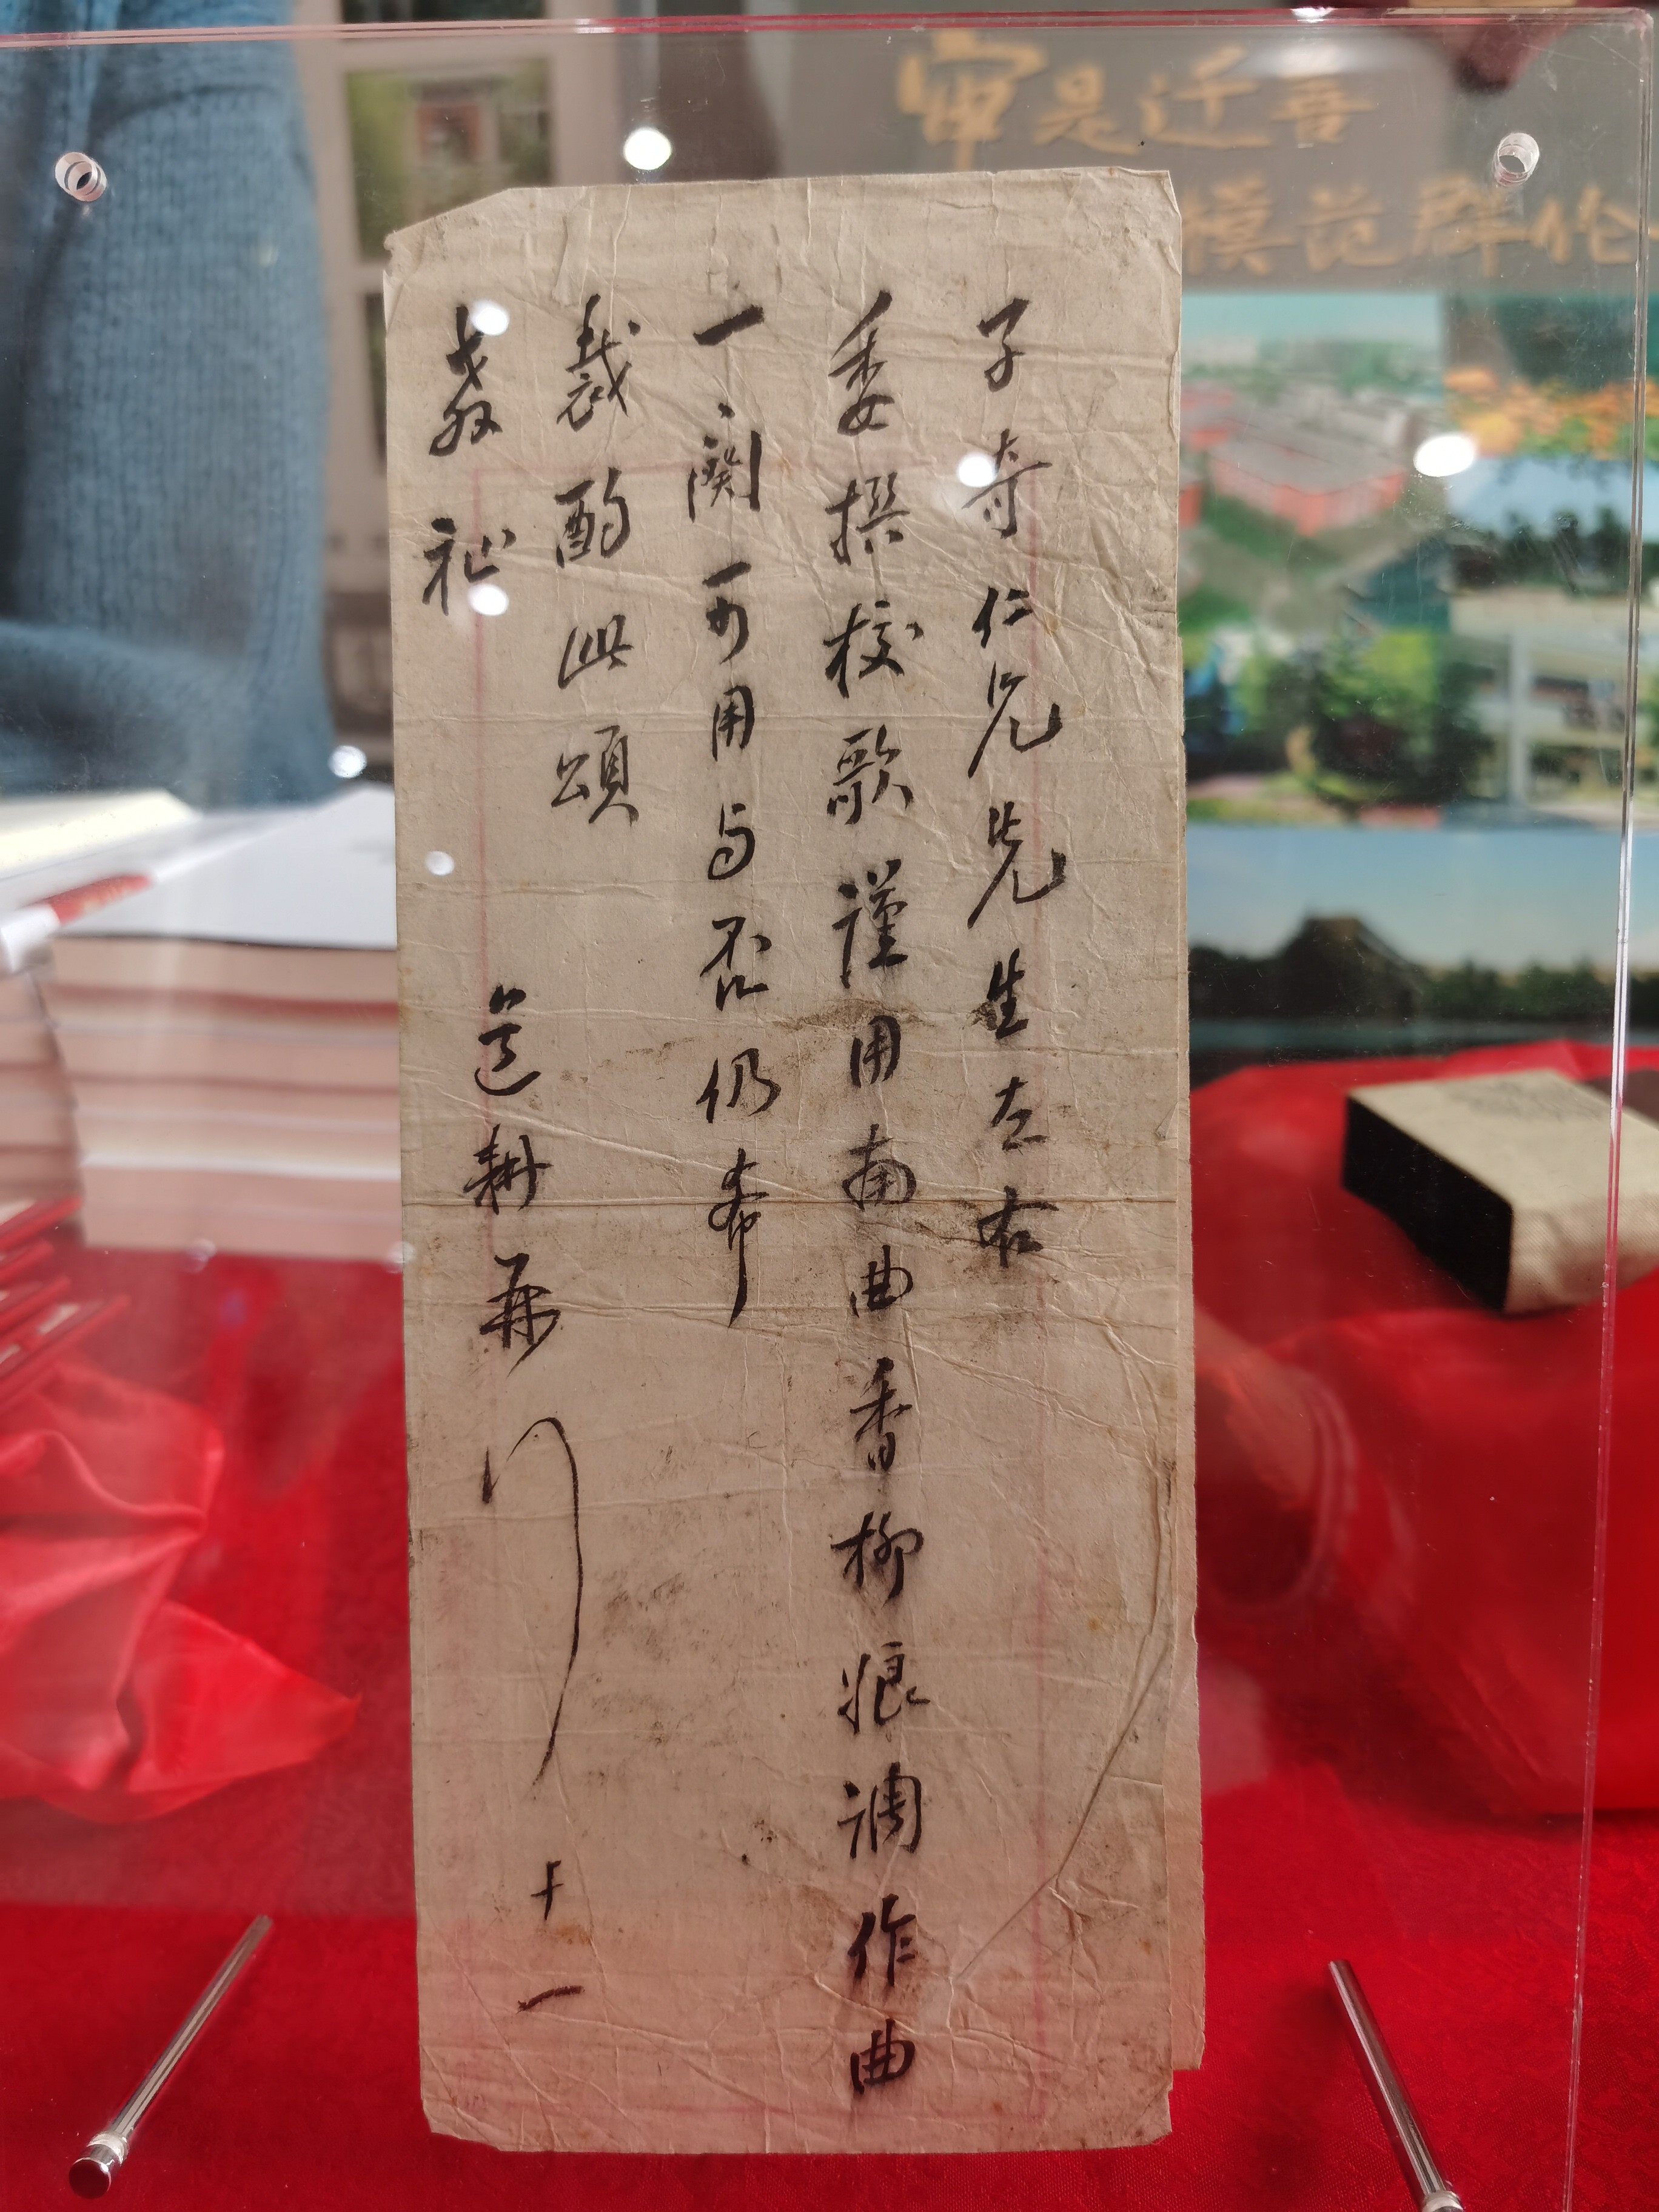 子奇仁兄先生左右
委撰校歌謹用南曲香柳娘調作曲
一闋可用与否仍希
裁酌此頌
教祉
耕 十一
是迁善
模范群伦